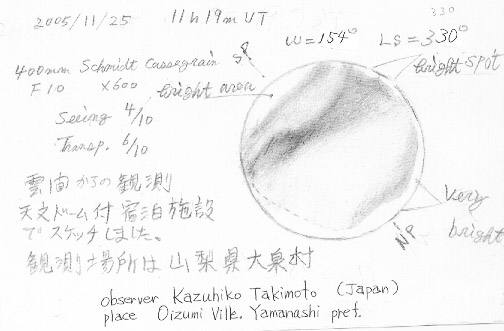 330
2005/11/25 11h19m UT
W=154° LS=330°
SP
400mm Schmidt Cassegrain
F10 x600
bright area
bright spot
Seeing 4/10
Transp. 6/10
雲間からの観測
天文ドーム付宿泊施設
でスケッチしました。
観測場所は山梨県大泉村
Very
bright
NP
observer Kazuhiko Takimoto (Japan)
place Oizumi Ville. Yamanashi pref.